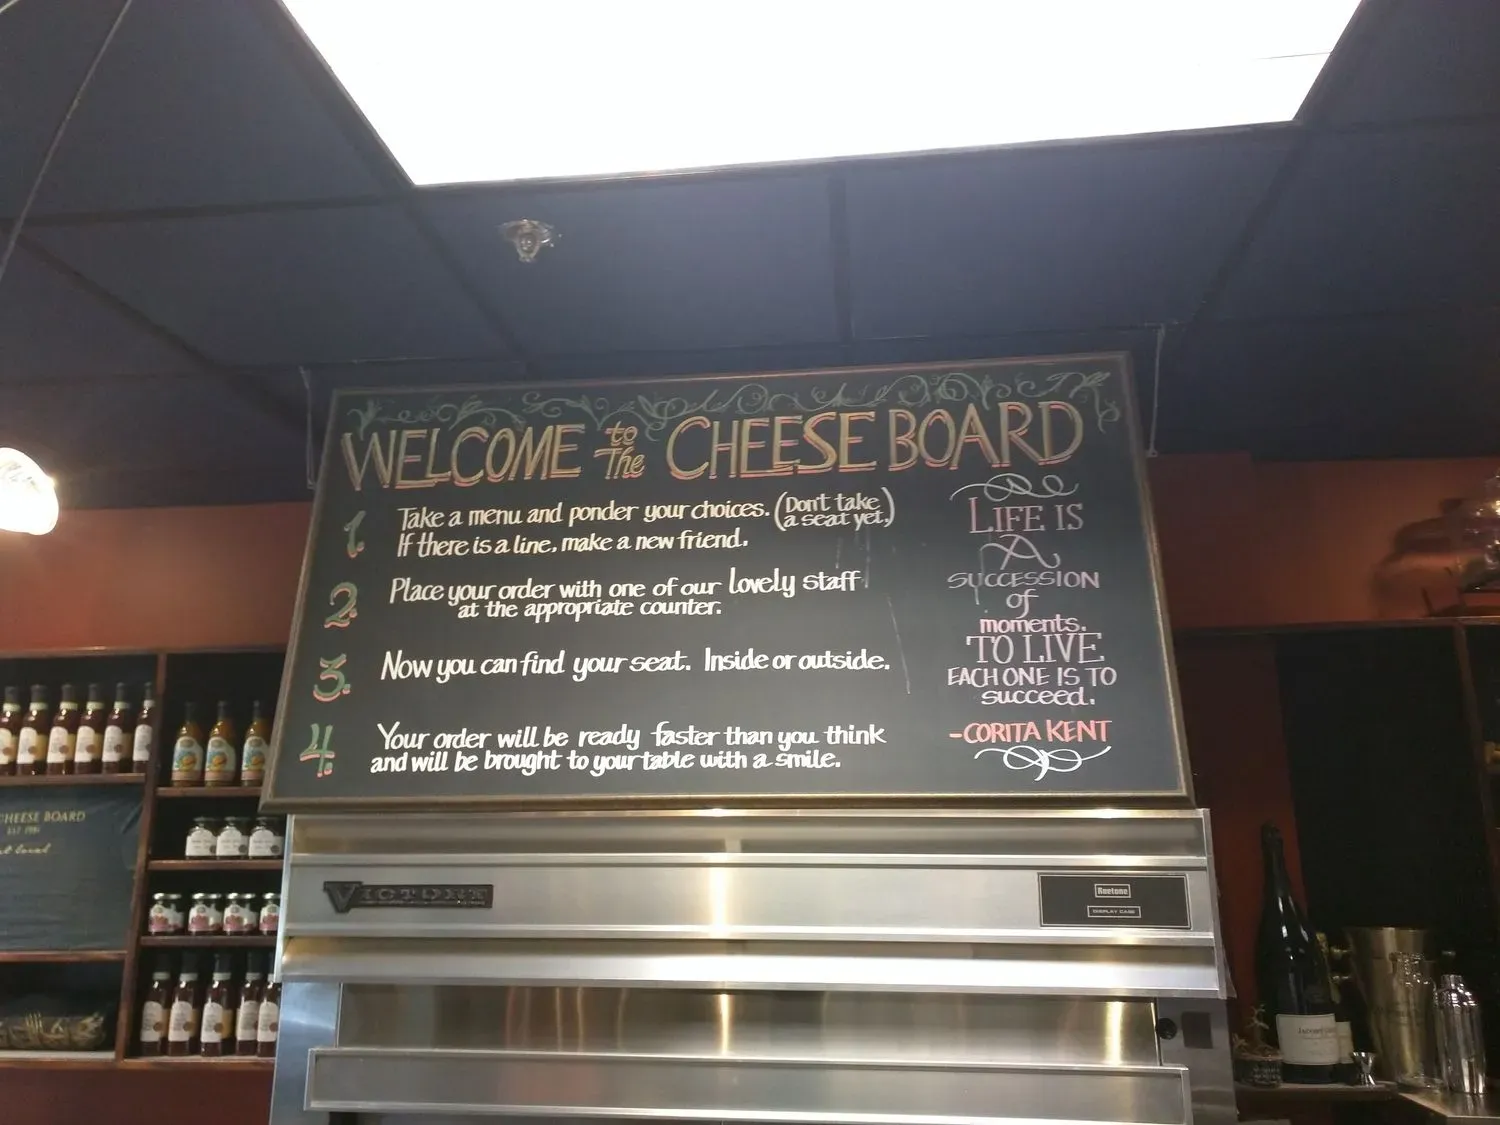 WELCOME to The CHEESE BOARD
1. Take a menu and ponder your choices. (Don't take a seat yet,)
If there is a line, make a new friend.
2. Place your order with one of our lovely staff
at the appropriate counter.
3. Now you can find your seat. Inside or outside.
4. Your order will be ready faster than you think
and will be brought to your table with a smile.
LIFE IS
A
SUCCESSION
of
moments.
TO LIVE
EACH ONE IS TO
succeed.
-CORITA KENT
CHEESE BOARD
EST 1981
local
VICTORY
Ruetone
DISPLAY CASE